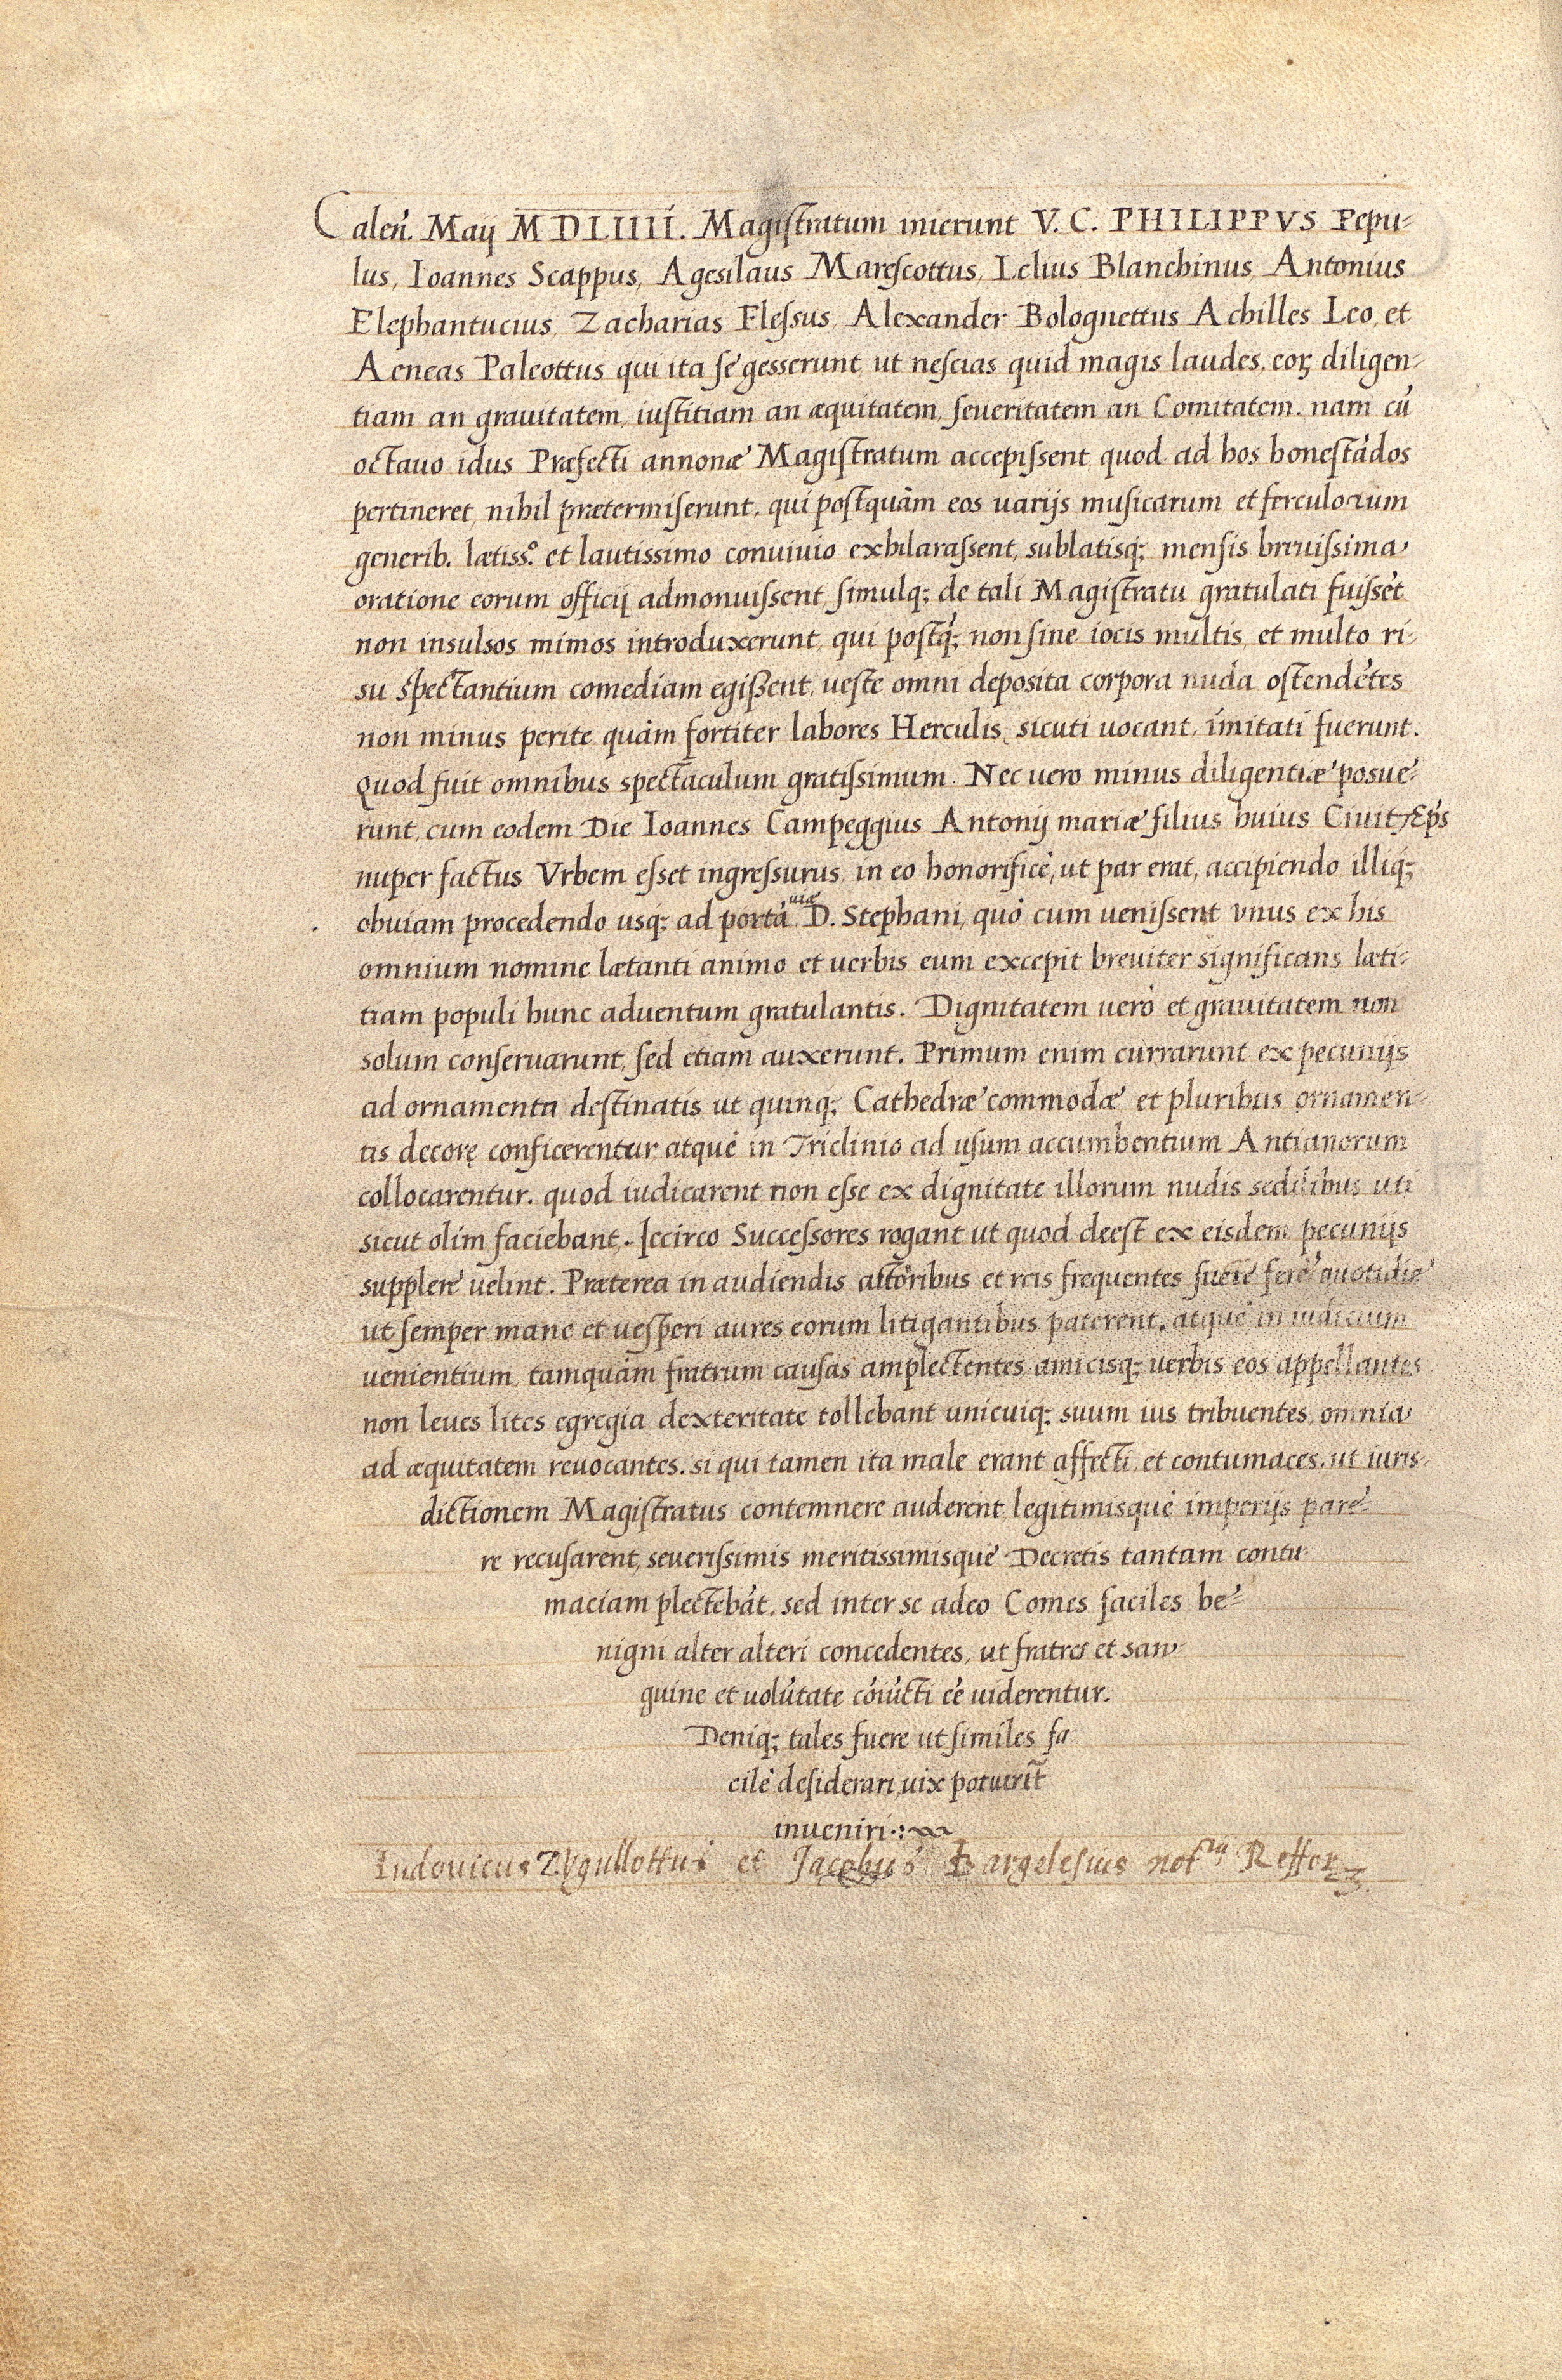 Caleñ. Maij MDLIIII. Magistratum inierunt V. C. PHILIPPVS Pepu=
lus, Ioannes Scappus, Agesilaus Marescottus, Lelius Blanchinus, Antonius
Elephantucius, Zacharias Flessus, Alexander Bolognettus Achilles Leo, et
Aeneas Paleottus qui ita se gesserunt, ut nescias quid magis laudes, eoꝝ diligen=
tiam an grauitatem, iustitiam an æquitatem, seueritatem an Comitatem. nam cū
octauo idus Præfecti annonæ Magistratum accepissent, quod ad hos honestādos
pertineret, nihil prætermiserunt. qui postquàm eos uarijs musicarum et ferculorum
generib. lætiss.º et lautissimo conuiuio exhilarassent, sublatisq; mensis breuissima
oratione eorum officij admonuissent, simulq; de tali Magistratu gratulati fuissēt
non insulsos mimos introduxerunt, qui postq̄; non sine iocis multis, et multo ri=
su spectantium comediam egißent, ueste omni deposita corpora nuda ostendētes
non minus perite quàm fortiter labores Herculis, sicuti uocant, imitati fuerunt.
Quod fuit omnibus spectaculum gratissimum. Nec uero minus diligentiæ posue=
runt, cum eodem Die Ioannes Campeggius Antonij mariæ filius huius Ciuit. Ep̄s
nuper factus Vrbem esset ingressurus, in eo honorificè, ut par erat, accipiendo illiq;
obuiam procedendo usq; ad portā uiæ D. Stephani, quò cum uenissent vnus ex his
omnium nomine lætanti animo et uerbis eum excepit breuiter significans læti=
tiam populi hunc aduentum gratulantis. Dignitatem uerò et grauitatem non
solum conseruarunt, sed etiam auxerunt. Primum enim currarunt ex pecunijs
ad ornamenta destinatis ut quinq; Cathedræ commodæ et pluribus ornamen=
tis decorę conficerentur, atque in Triclinio ad usum accumbentium Antianorum
collocarentur. quod iudicarent non esse ex dignitate illorum nudis sedilibus uti
sicut olim faciebant. Iccirco Successores rogant ut quod deest ex eisdem pecunijs
supplere uelint. Præterea in audiendis actoribus et reis frequentes fuere fere quotidie
ut semper mane et uesperi aures eorum litigantibus paterent. atque in iudicium
uenientium, tamquàm fratrum causas amplectentes amicisq; uerbis eos appellantes
non leues lites egregia dexteritate tollebant unicuiq; suum ius tribuentes, omnia
ad æquitatem reuocantes. si qui tamen ita male erant affecti, et contumaces, ut iuris=
dictionem Magistratus contemnere auderent, legitimisque imperijs pare=
re recusarent, seuerissimis meritissimisque Decretis tantam contu=
maciam plectebāt. sed inter se adeo Comes faciles be=
nigni alter alteri concedentes, ut fratres et san=
guine et uolūtate cōiūcti eē uiderentur.
Deniq; tales fuere ut similes fa
cilè desiderari, uix potuerīt
inueniri
Ludouicus et Jacobus Bargelesius not.rij Reffor.